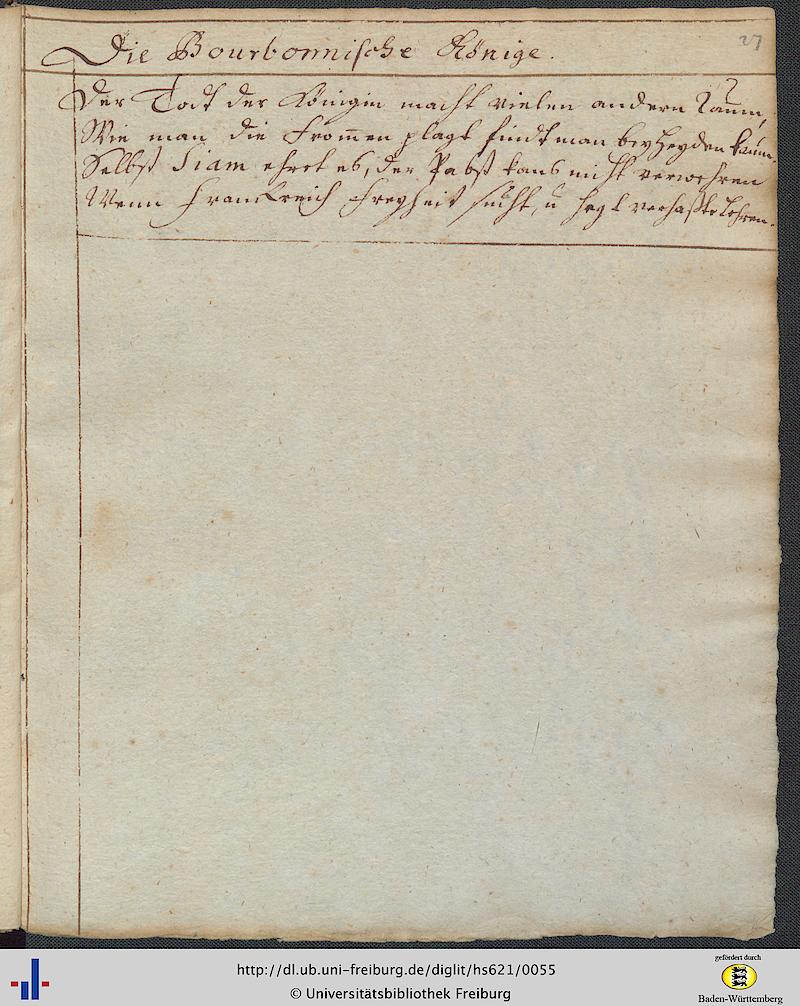 27
Die Bourbonnische Könige.
Der Todt der Königin macht vielen andern Raum,
Wie man die Frommen plagt findt man bey Heyden kaum.
Selbst Siam ehret es, der Pabst kans nicht verwehren
Wenn Franckreich Freyheit sucht, u hegt verhaßte Lehren.
http://dl.ub.uni-freiburg.de/diglit/hs621/0055
© Universitätsbibliothek Freiburg
gefördert durch
Baden-Württemberg